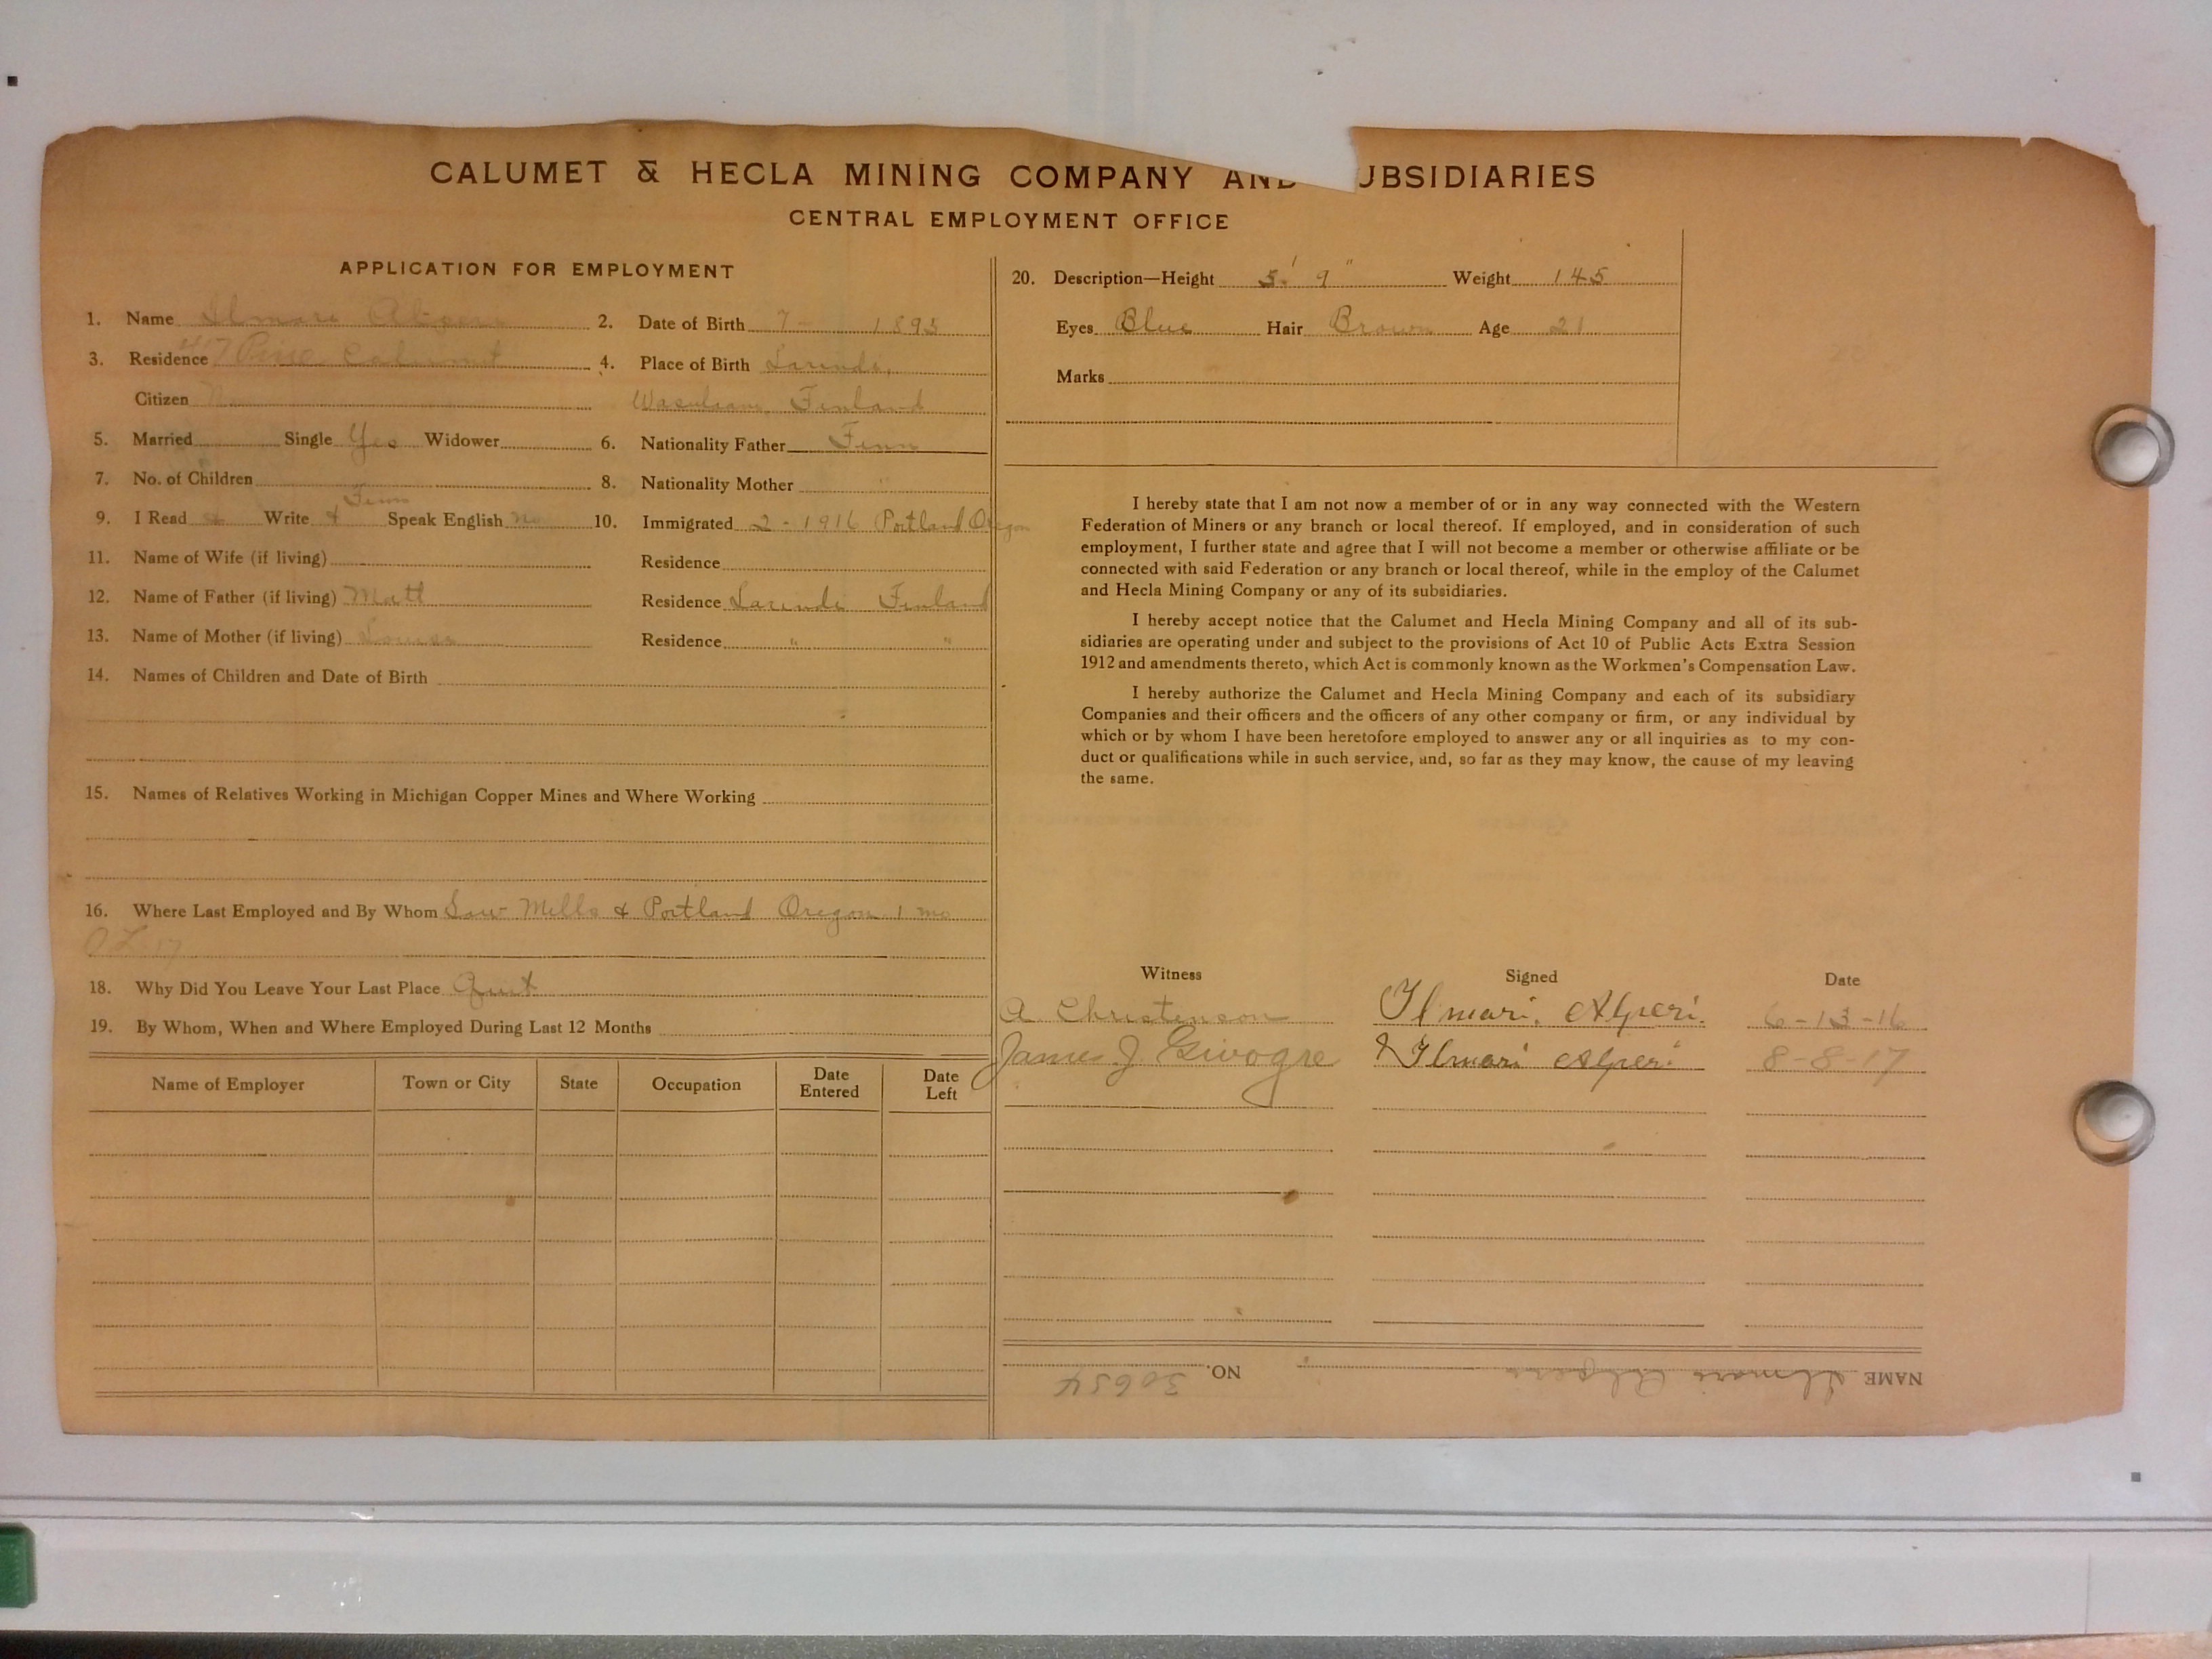 CALUMET & HECLA MINING COMPANY AND SUBSIDIARIES
CENTRAL EMPLOYMENT OFFICE
APPLICATION FOR EMPLOYMENT
1. Name Ilmari 2. Date of Birth 7 1895
3. Residence 417 Pine Calumet 4. Place of Birth
Citizen No Finland
5. Married Single Yes Widower 6. Nationality Father Finn
7. No. of Children 8. Nationality Mother "
Finn
9. I Read & Write & Speak English No 10. Immigrated 2 - 1916 Portland Oregon
11. Name of Wife (if living) Residence
12. Name of Father (if living) Matt Residence Finland
13. Name of Mother (if living) Residence " "
14. Names of Children and Date of Birth
15. Names of Relatives Working in Michigan Copper Mines and Where Working
16. Where Last Employed and By Whom Saw Mills & Portland Oregon 1 mo
18. Why Did You Leave Your Last Place Quit
19. By Whom, When and Where Employed During Last 12 Months
Name of Employer Town or City State Occupation Date Entered Date Left
20. Description—Height 5' 9" Weight 145
Eyes Blue Hair Brown Age 21
Marks
I hereby state that I am not now a member of or in any way connected with the Western
Federation of Miners or any branch or local thereof. If employed, and in consideration of such
employment, I further state and agree that I will not become a member or otherwise affiliate or be
connected with said Federation or any branch or local thereof, while in the employ of the Calumet
and Hecla Mining Company or any of its subsidiaries.
I hereby accept notice that the Calumet and Hecla Mining Company and all of its sub-
sidiaries are operating under and subject to the provisions of Act 10 of Public Acts Extra Session
1912 and amendments thereto, which Act is commonly known as the Workmen's Compensation Law.
I hereby authorize the Calumet and Hecla Mining Company and each of its subsidiary
Companies and their officers and the officers of any other company or firm, or any individual by
which or by whom I have been heretofore employed to answer any or all inquiries as to my con-
duct or qualifications while in such service, and, so far as they may know, the cause of my leaving
the same.
Witness Signed Date
A Christenson Ilmari. Alperi. 6-13-16
James J. Givogre Ilmari Alperi 8-8-17
NAME Ilmari NO. 30654